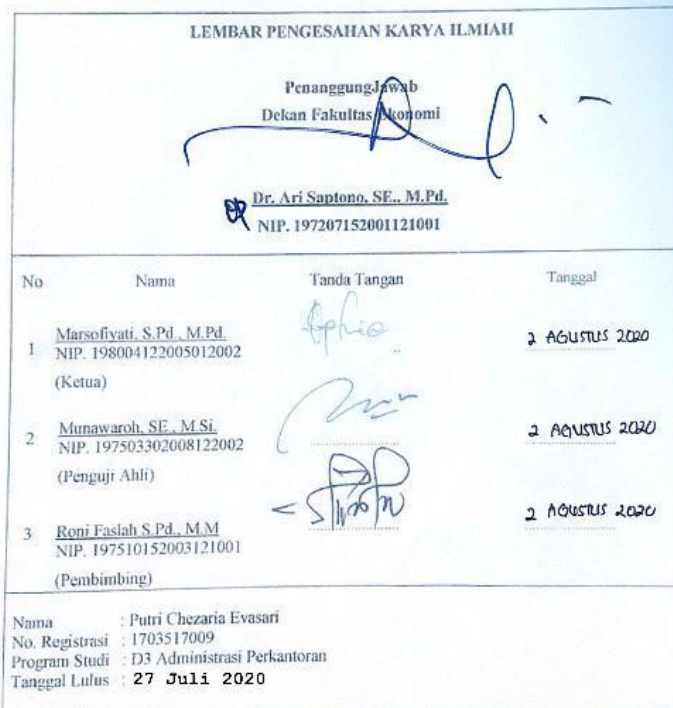 LEMBAR PENGESAHAN KARYA ILMIAH
PenanggungJawab
Dekan Fakultas Ekonomi
Dr. Ari Saptono, SE., M.Pd.
NIP. 197207152001121001
No Nama Tanda Tangan Tanggal
1 Marsofiyati, S.Pd., M.Pd. 2 AGUSTUS 2020
NIP. 198004122005012002
(Ketua)
2 Munawaroh, SE., M.Si. 2 AGUSTUS 2020
NIP. 197503302008122002
(Penguji Ahli)
3 Roni Faslah S.Pd., M.M 2 AGUSTUS 2020
NIP. 197510152003121001
(Pembimbing)
Nama : Putri Chezaria Evasari
No. Registrasi : 1703517009
Program Studi : D3 Administrasi Perkantoran
Tanggal Lulus : 27 Juli 2020